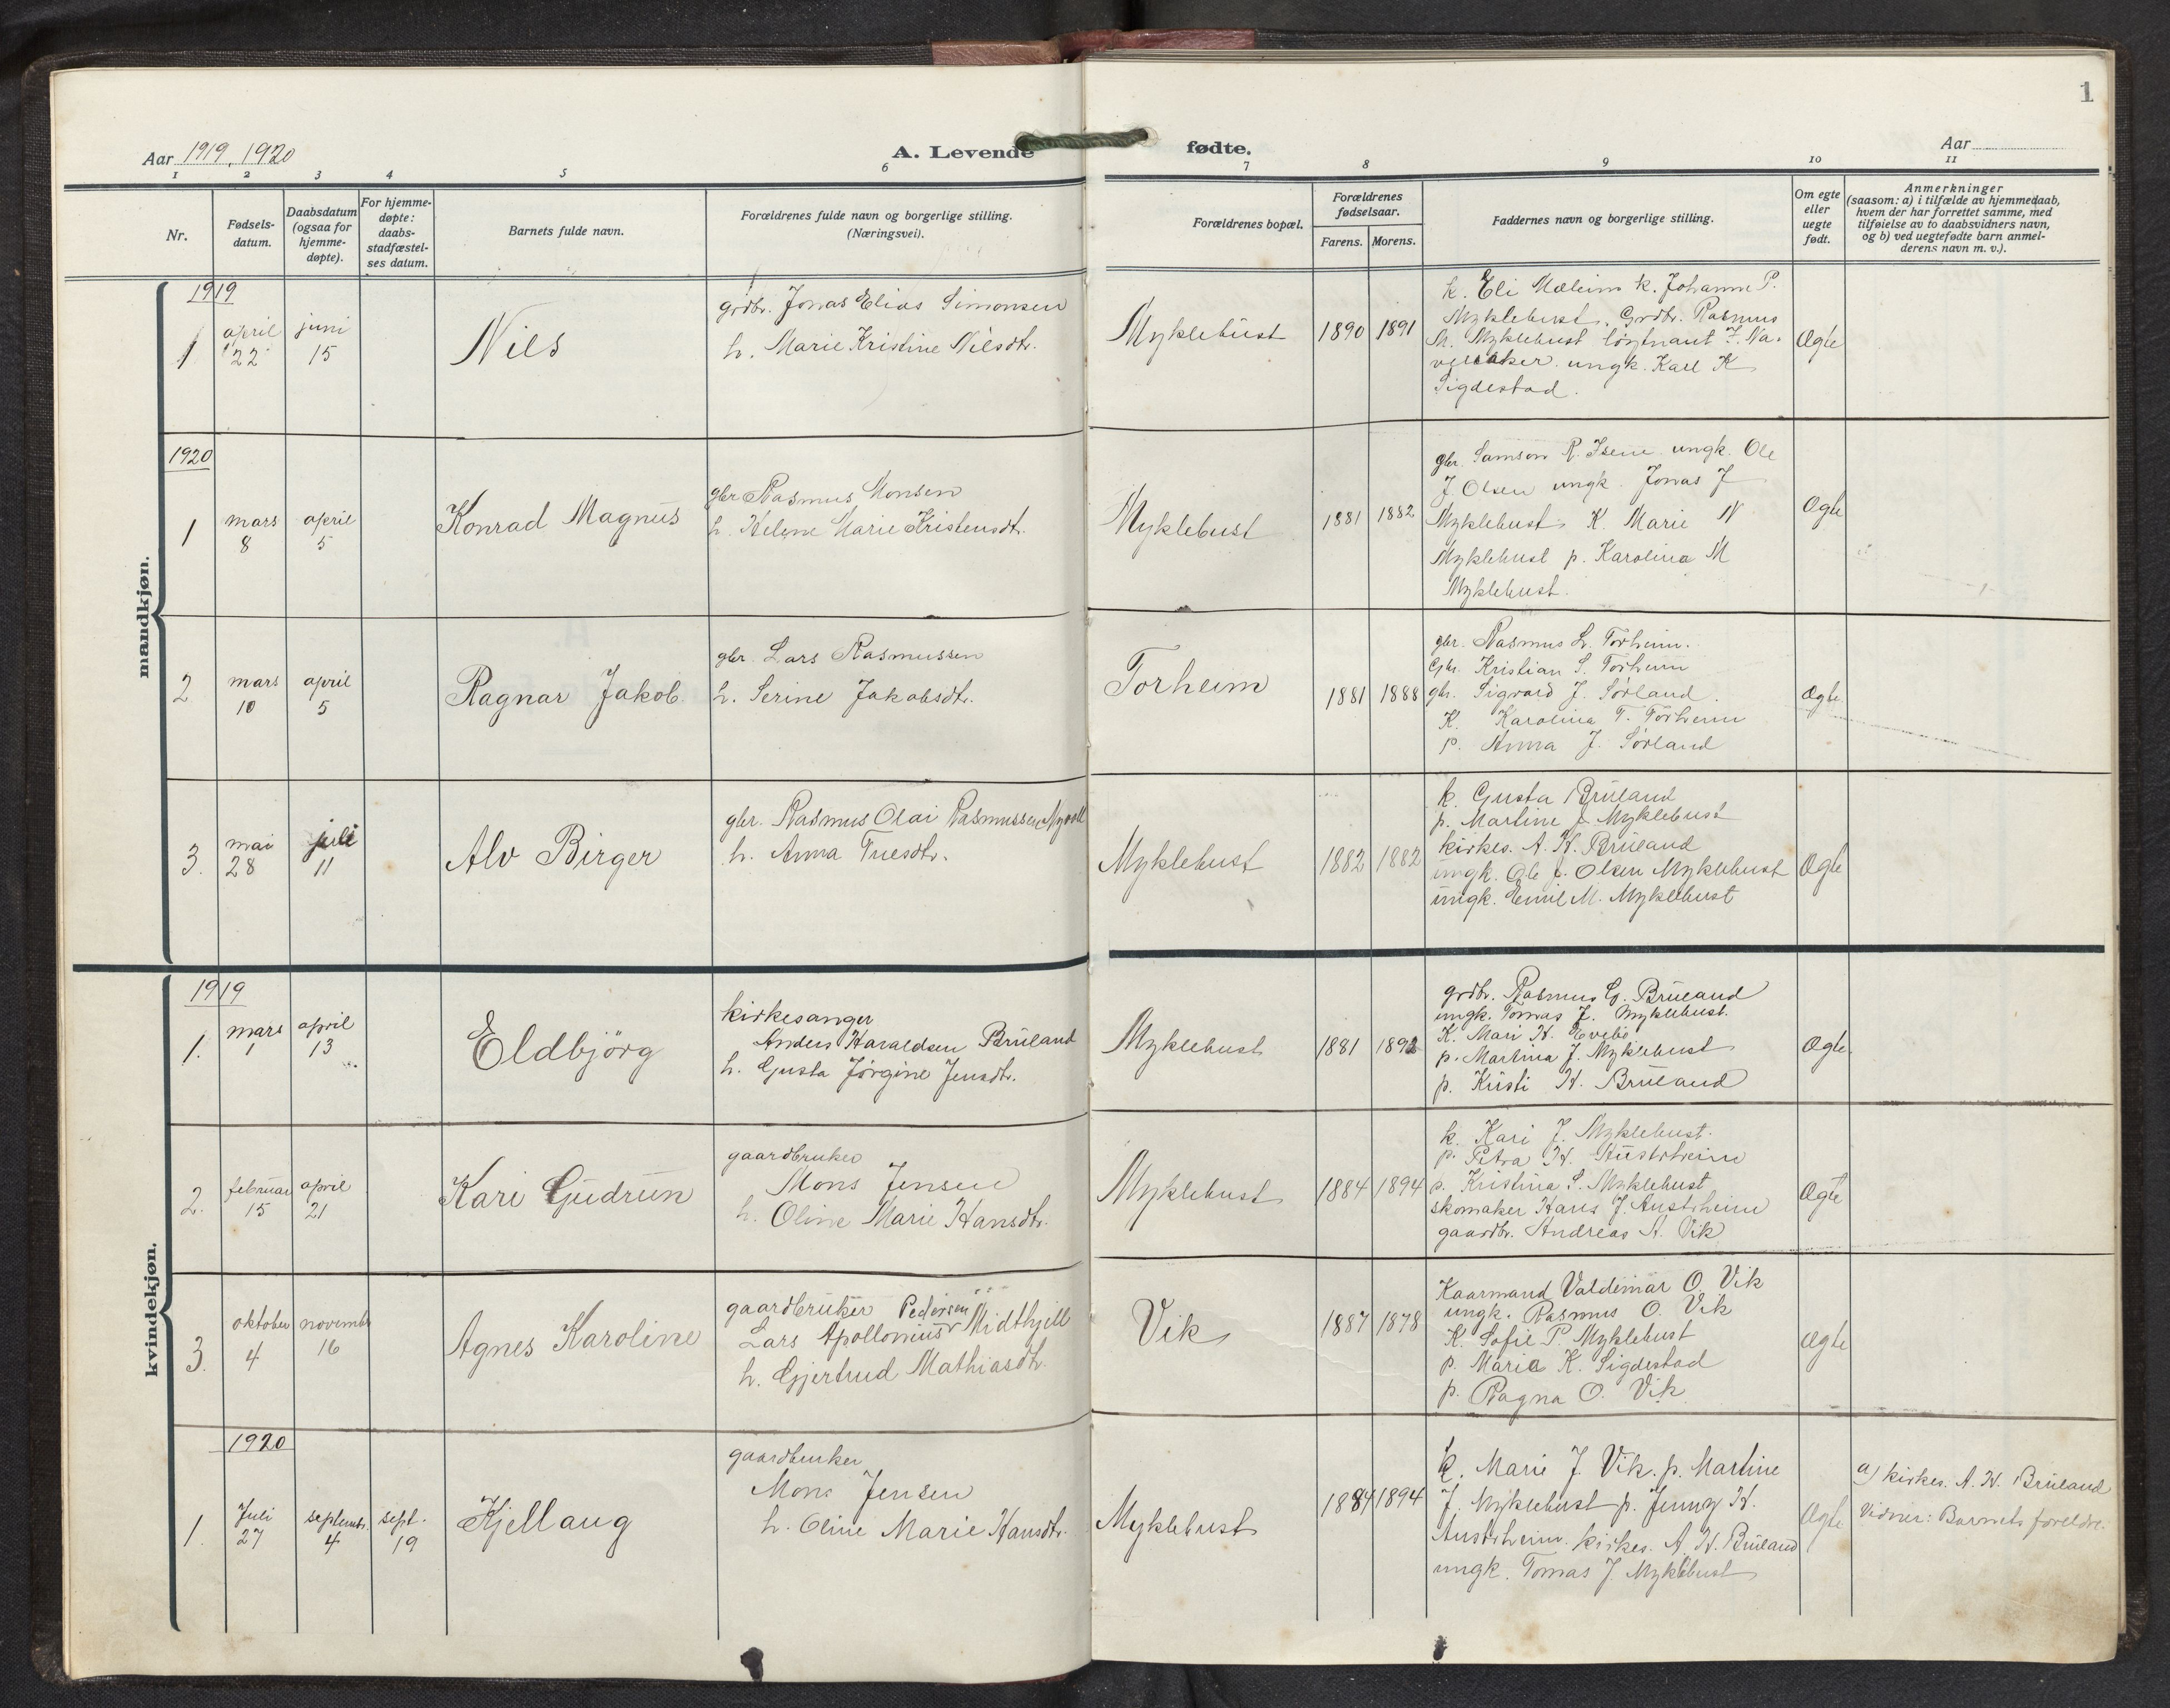 1
Aar 1919, 1920
A. Levende fødte.
Aar
1 2 3 4 5 6 7 8 9 10 11
Nr.
Fødsels-
datum.
Daabsdatum
(ogsaa for
hjemme-
døpte).
For hjemme-
døpte:
daabs-
stadfæstel-
ses datum.
Barnets fulde navn.
Forældrenes fulde navn og borgerlige stilling.
(Næringsvei).
Forældrenes bopæl.
Forældrenes
fødselsaar.
Farens. Morens.
Faddernes navn og borgerlige stilling.
Om egte
eller
uegte
født.
Anmerkninger
(saasom: a) i tilfælde av hjemmedaab,
hvem der har forrettet samme, med
tilføielse av to daabsvidners navn,
og b) ved uegtefødte barn anmel-
derens navn m. v.).
mandkjøn.
1919
1
april
22
juni
15
Nils
grdbr. Jonas Elias Simonsen
h. Marie Kristine Nilsdtr.
Myklebust
1890 1891
k. Eli Mæleim k. Johanne P.
Myklebust. Grdbr. Rasmus
M. Myklebust løytnant J. Na-
velsaker. ungk. Karl K
Sigdestad.
Øgte
1920
1
mars
8
april
5
Konrad Magnus
gbr Rasmus Monsen
h. Helene Marie Kristensdtr.
Myklebust
1881 1882
gbr. Samson R. Isene ungk. Ole
J. Olsen ungk. Jonas J
Myklebust K. Marie N
Myklebust p. Karolina M
Myklebust.
Øgte
2
mars
10
april
5
Ragnar Jakob
gbr. Lars Rasmussen
h. Serine Jakobsdtr.
Torheim
1881 1888
gbr. Rasmus L. Torheim.
Gbr. Kristian S. Torheim
gbr. Sigvard J. Sørland.
K. Karolina T. Torheim
p. Anna J. Sørland
Øgte
3.
mai
28
juli
11
Alv Birger
gbr. Rasmus Olai Rasmussen Myvoll
h. Anna Tuesdtr.
Myklebust
1882 1882
k. Gusta Brüland
p. Martine J. Myklebust
kirkes. A. H. Brüland
ungk. Ole J. Olsen Myklebust
ungk. Emil M. Myklebust
Øgte
kvindekjøn.
1919
1.
mars
1
april
13
Eldbjörg
kirkesanger
Anders Haraldsen Brüland
h. Gusta Jørgine Jensdtr.
Myklebust
1881 1892
grdbr. Rasmus G. Brüland
ungk. Tomas J. Myklebust.
K. Mari H. Evebø
p. Martina J. Myklebust
p. Kristi H. Brüland
Øgte
2.
februar
15
april
21
Kari Gudrun
gaardbruker
Mons Jensen
h. Oline Marie Hansdtr.
Myklebust
1884 1894
k. Kari J. Myklebust.
p. Petra H. Austrheim
p. Kristina S. Myklebust
skomaker Hans J. Austrheim
gaardbr. Andreas A. Vik
Øgte
3.
oktober
4
novembr
16
Agnes Karoline
gaardbruker Pedersen
Lars Apollonius Midthjell
h. Gjertrud Mathiasdtr.
Vik
1887 1878
Kaarmand Valdemar O. Vik
ungk. Rasmus O. Vik
K. Sofie P. Myklebust
p. Maria K. Sigdestad
p. Ragna O. Vik
Øgte
1920
1.
Juli
27
septembr.
4
sept.
19
Kjellaug
gaardbruker
Mons Jensen
h. Oline Marie Hansdtr.
Myklebust
1884 1894
k. Marie J. Vik. p. Martine
J. Myklebust p. Jenny H.
Austrheim. kirkes. A. H. Brüland
ungk. Tomas J. Myklebust
Øgte
a) kirkes. A. H. Brüland
Vidner: Barnets foreldre.